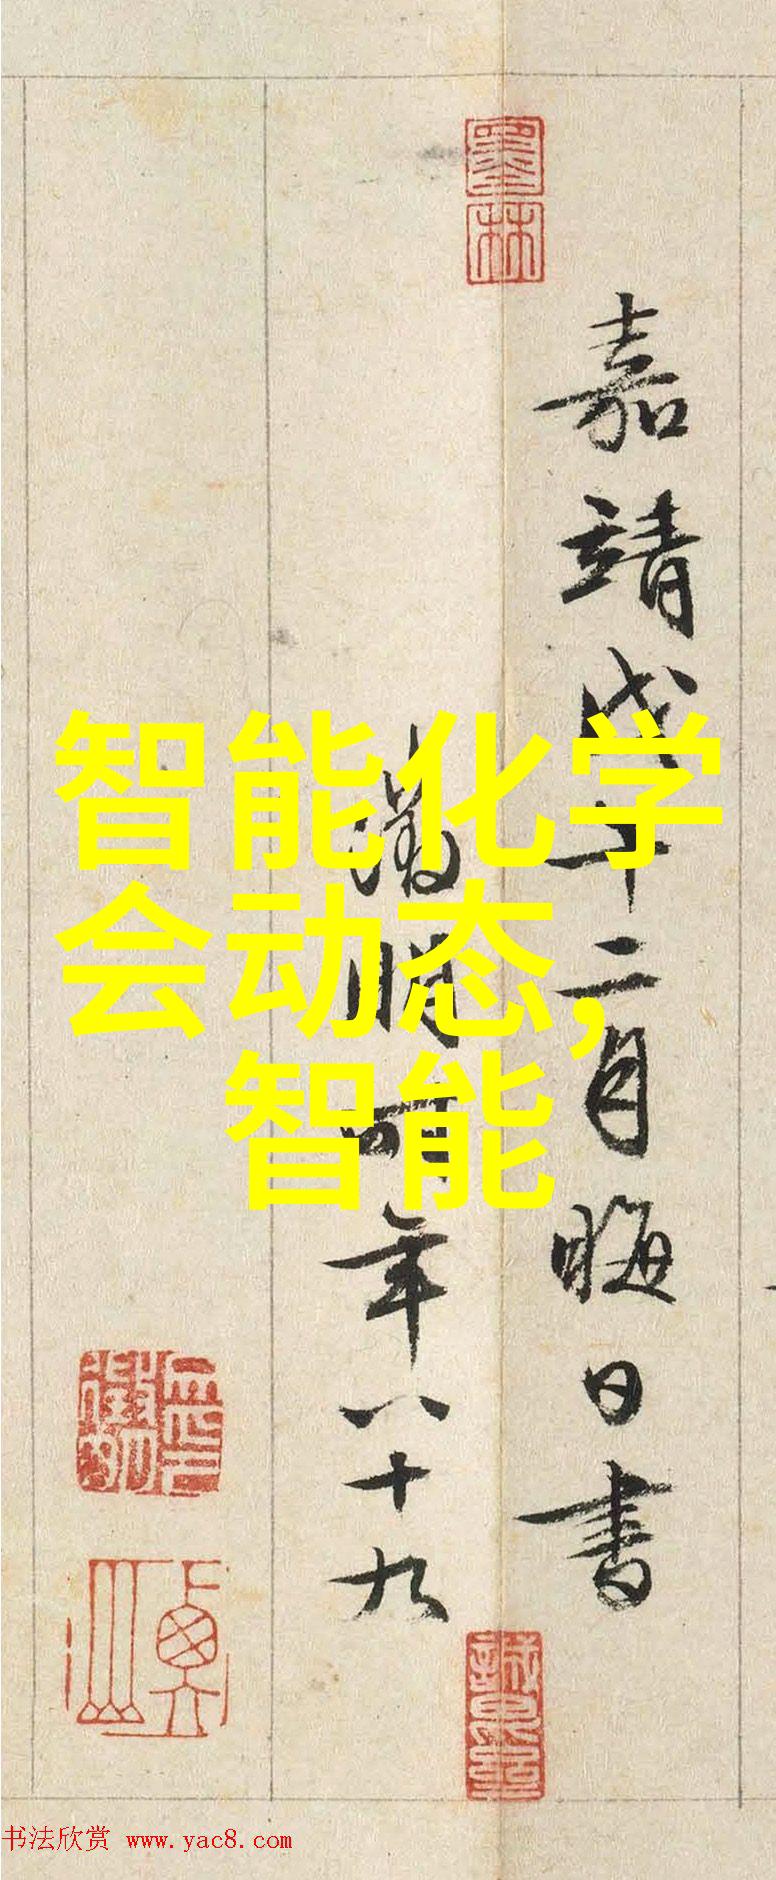 墨林
嘉靖戊午十二月晦日書
徵明時年八十九
智能化学
会动态,
智能
书法欣赏 www.yac8.com